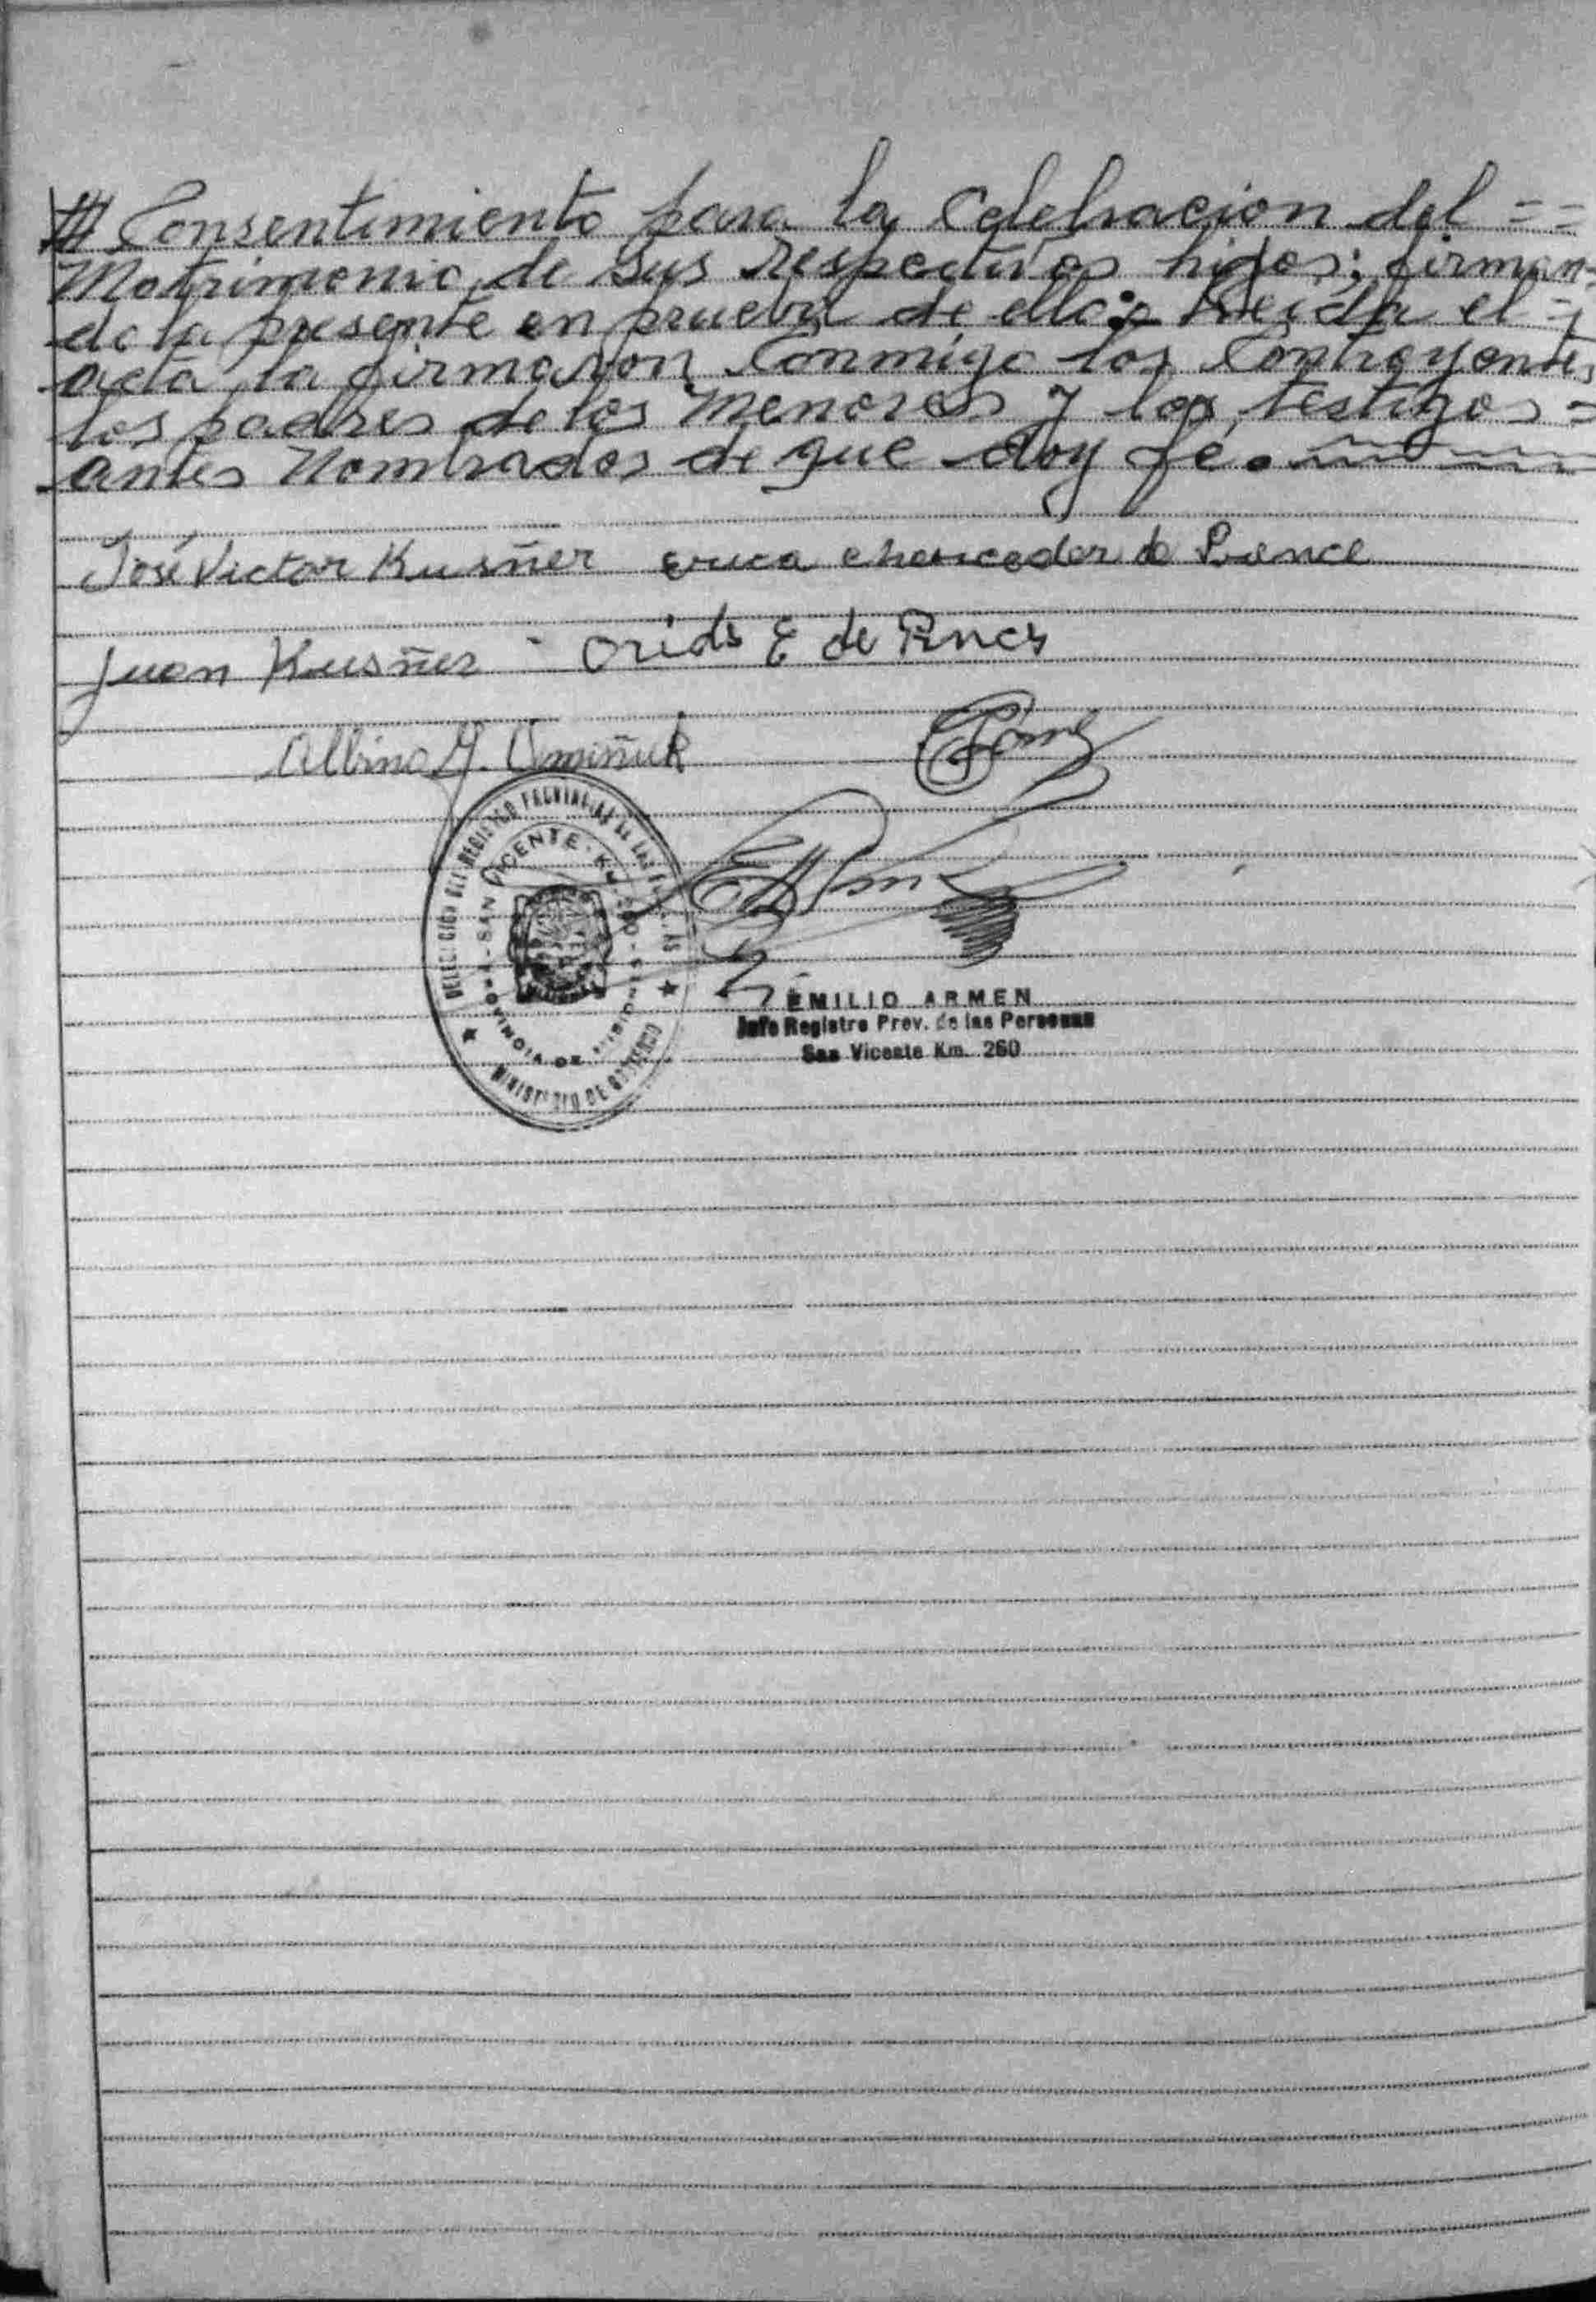 /// Consentimiento para la Celebracion del ==
Matrimonio de sus respectivos hijos; firman-
do la presente en prueba de ello: Leida el
acta, la firmaron Conmigo los Contrayentes
los padres de los Menores y los testigos =
antes Nombrados de que doy fé.
José Victor Kusñer Eruca de Ponce
Juan Kusñer E de
Albino
DELEGACIÓN DEL REGISTRO PROVINCIAL DE LAS PERSONAS
SAN VICENTE - K
PROVINCIA DE MISIONES
MINISTERIO DE GOBIERNO
EMILIO ARMEN
Jefe Registro Prov. de las Personas
San Vicente Km. 260